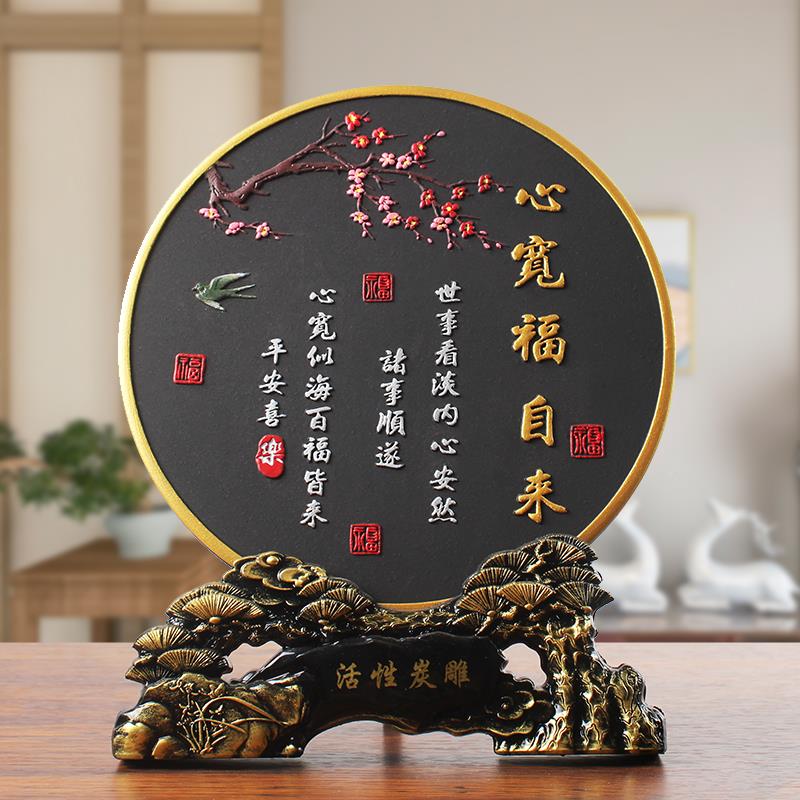 心寬福自来
世事看淡内心安然
諸事順遂
心寬似海百福皆来
平安喜樂
福
福
福
福
活性炭雕